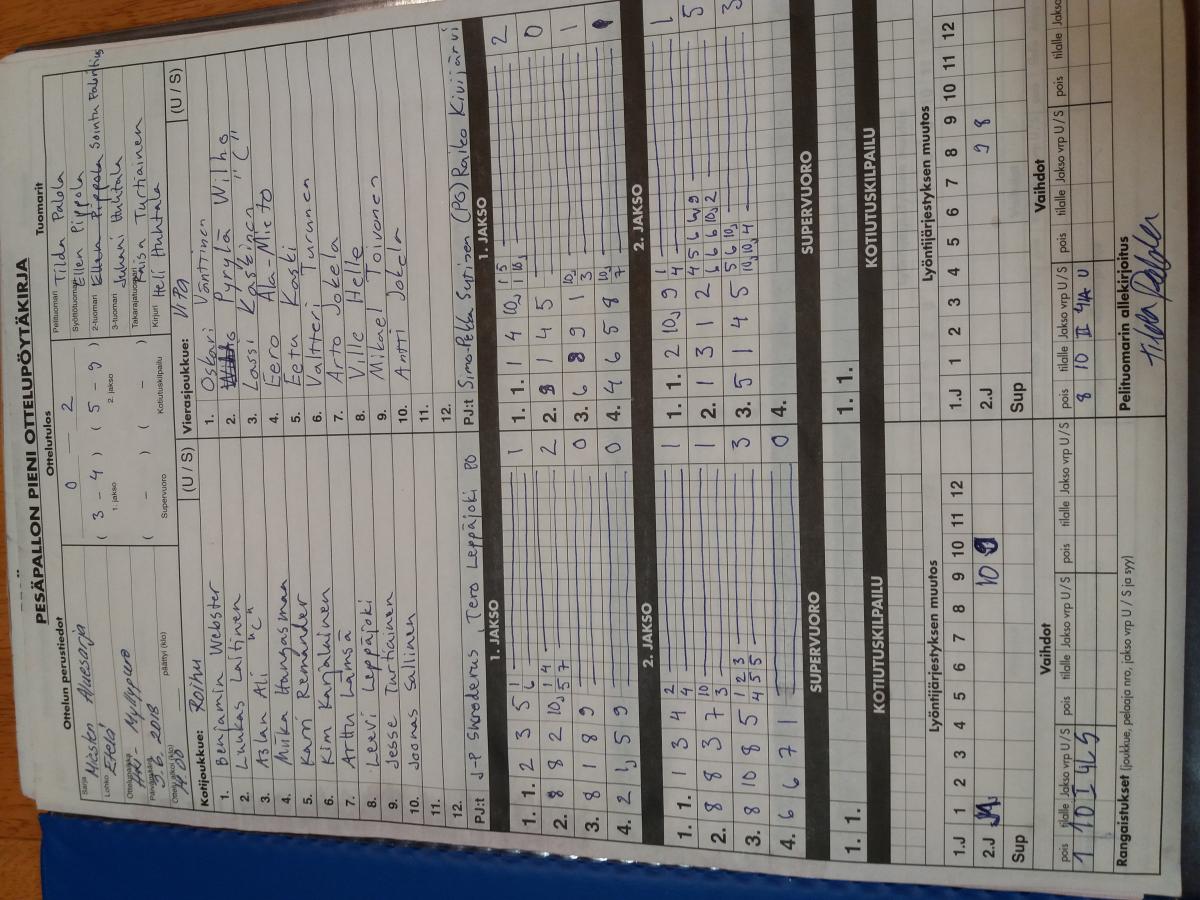 PESÄPALLON PIENI OTTELUPÖYTÄKIRJA
Ottelun perustiedot
Sarja
Miesten Aluesarja
Lohko
Etelä
Ottelupaikka
Hki - Myllypuro
Päivämäärä
9.6. 2018
Ottelu alkoi (klo)
14.00
päättyi (klo)
Ottelutulos
0 2
( 3 - 4 ) ( 5 - 9 )
1. jakso 2. jakso
( - ) ( - )
Supervuoro Kotiutuskilpailu
Tuomarit
Pelituomari Tilda Palola
Syöttötuomari Ellen Pippola
2-tuomari Ellen Pippola Sointu Fabritius
3-tuomari Juhani Huhtala
Takarajatuomari Raisa Turtiainen
Kirjuri Heli Huhtala
Kotijoukkue: Roihu (U / S)
1. Benjamin Webster
2. Luukas Laitinen
3. Aslan Ali "C"
4. Miika Hangasmaa
5. Karri Remander
6. Kim Karjalainen
7. Arttu Lämsä
8. Leevi Leppäjoki
9. Jesse Turtiainen
10. Joonas Sallinen
11.
12.
PJ:t J-P Skroderus, Tero Leppäjoki PO
Vierasjoukkue: ViPa (U / S)
1. Oskari Vänttinen
2. Pyrylä Wilho
3. Lassi Kaskinen "C"
4. Eero Ala-Mieto
5. Eetu Kaski
6. Valtteri Turunen
7. Arto Jokela
8. Ville Helle
9. Mikael Toivonen
10. Antti Jokela
11.
12.
PJ:t Simo-Pekka Sutinen (PO) Raiko Kivijärvi
1. JAKSO
1. 1. 2 3 5 1 6 1
2. 8 8 2 10 1 4 5 7 2
3. 8 1 8 9 0
4. 2 5 9 0
2. JAKSO
1. 1. 1 3 4 2 4 1
2. 8 8 3 7 10 3 1
3. 8 10 8 5 1 2 3 4 5 5 3
4. 6 6 7 1 0
SUPERVUORO
1. 1.
KOTIUTUSKILPAILU
1. JAKSO
1. 1. 1 4 10 1 5 1 10 2
2. 1 4 5 0
3. 6 8 9 1 10 3 1
4. 4 6 5 8 10 7 1
2. JAKSO
1. 1. 2 10 9 1 4 1
2. 1 3 1 2 4 5 6 9 6 6 10 2 5
3. 5 1 4 5 5 6 10 10 10 4 3
4.
SUPERVUORO
1. 1.
KOTIUTUSKILPAILU
Lyöntijärjestyksen muutos
1.J 1 2 3 4 5 6 7 8 9 10 11 12
2.J 10
Sup
Lyöntijärjestyksen muutos
1.J 1 2 3 4 5 6 7 8 9 10 11 12
2.J 9 8
Sup
Vaihdot
pois tilalle Jakso vrp U / S pois tilalle Jakso vrp U / S pois tilalle Jakso vrp U / S
1 10 I 4L S
Vaihdot
pois tilalle Jakso vrp U / S pois tilalle Jakso vrp U / S pois tilalle Jakso
8 10 II 4/A U
Rangaistukset (joukkue, pelaaja nro, jakso vrp U / S ja syy)
Pelituomarin allekirjoitus
Tilda Palola